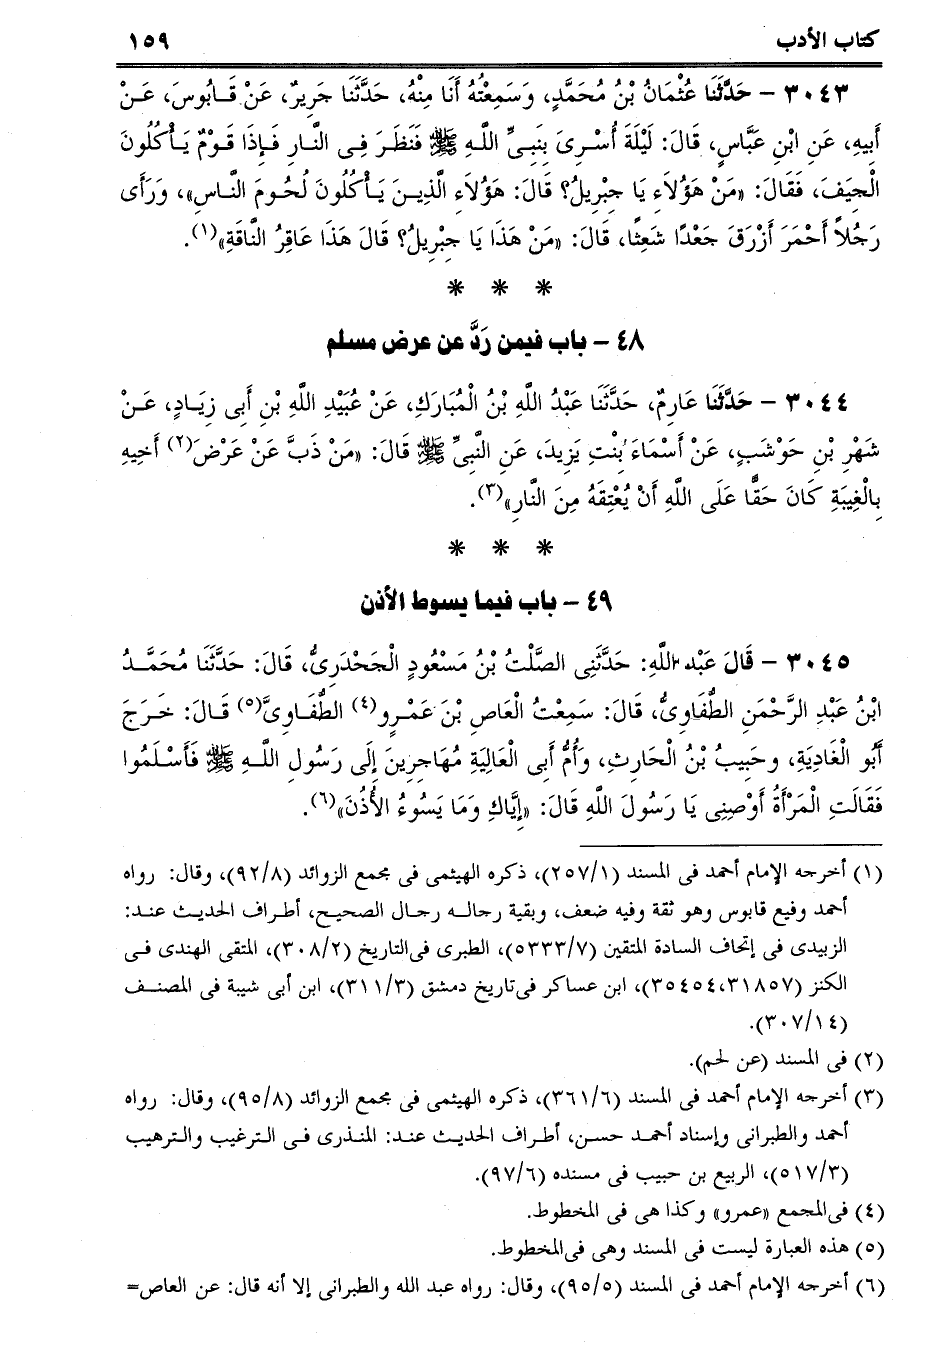 كتاب الأدب ١٥٩
٣٠٤٣ – حَدَّثَنَا عُثْمَانُ بْنُ مُحَمَّدٍ، وَسَمِعْتُهُ أَنَا مِنْهُ، حَدَّثَنَا جَرِيرٌ، عَنْ قَابُوسَ، عَنْ
أَبِيهِ، عَنِ ابْنِ عَبَّاسٍ، قَالَ: لَيْلَةَ أُسْرِىَ بِنَبِىِّ اللَّهِ ﷺ فَنَظَرَ فِى النَّارِ فَإِذَا قَوْمٌ يَأْكُلُونَ
الْجِيَفَ، فَقَالَ: «مَنْ هَؤُلاَءِ يَا جِبْرِيلُ؟ قَالَ: هَؤُلاَءِ الَّذِينَ يَأْكُلُونَ لُحُومَ النَّاسِ»، وَرَأَى
رَجُلاً أَحْمَرَ أَزْرَقَ جَعْدًا شَعِثًا، قَالَ: «مَنْ هَذَا يَا جِبْرِيلُ؟ قَالَ هَذَا عَاقِرُ النَّاقَةِ»(١).
* * *
٤٨ – باب فيمن رَدَّ عن عرض مسلم
٣٠٤٤ – حَدَّثَنَا عَارِمٌ، حَدَّثَنَا عَبْدُ اللَّهِ بْنُ الْمُبَارَكِ، عَنْ عُبَيْدِ اللَّهِ بْنِ أَبِى زِيَادٍ، عَنْ
شَهْرِ بْنِ حَوْشَبٍ، عَنْ أَسْمَاءَ بِنْتِ يَزِيدَ، عَنِ النَّبِىِّ ﷺ قَالَ: «مَنْ ذَبَّ عَنْ عَرْضَ(٢) أَخِيهِ
بِالْغِيبَةِ كَانَ حَقًّا عَلَى اللَّهِ أَنْ يُعْتِقَهُ مِنَ النَّارِ»(٣).
* * *
٤٩ – باب فيما يسوط الأذن
٣٠٤٥ – قَالَ عَبْد اللَّهِ: حَدَّثَنِى الصَّلْتُ بْنُ مَسْعُودٍ الْجَحْدَرِىُّ، قَالَ: حَدَّثَنَا مُحَمَّدُ
ابْنُ عَبْدِ الرَّحْمَنِ الطُّفَاوِىُّ، قَالَ: سَمِعْتُ الْعَاصِ بْنَ عَمْرٍو(٤) الطُّفَاوِىَّ(٥) قَالَ: خَرَجَ
أَبُو الْغَادِيَةِ، وحَبِيبُ بْنُ الْحَارِثِ، وَأُمُّ أَبِى الْعَالِيَةِ مُهَاجِرِينَ إِلَى رَسُولِ اللَّهِ ﷺ فَأَسْلَمُوا
فَقَالَتِ الْمَرْأَةُ أَوْصِنِى يَا رَسُولَ اللَّهِ قَالَ: «إِيَّاكِ وَمَا يَسُوءُ الأُذُنَ»(٦).
(١) أخرجه الإمام أحمد فى المسند (٢٥٧/١)، ذكره الهيثمى فى مجمع الزوائد (٩٢/٨)، وقال: رواه
أحمد وفيع قابوس وهو ثقة وفيه ضعف، وبقية رجاله رجال الصحيح، أطراف الحديث عند:
الزبيدى فى إتحاف السادة المتقين (٥٣٣٣/٧)، الطبرى فى التاريخ (٣٠٨/٢)، المتقى الهندى فى
الكنز (٣١٨٥٧، ٣٥٤٥٤)، ابن عساكر فى تاريخ دمشق (٣١١/٣)، ابن أبى شيبة فى المصنف
(٣٠٧/١٤).
(٢) فى المسند (عن لحم).
(٣) أخرجه الإمام أحمد فى المسند (٣٦١/٦)، ذكره الهيثمى فى مجمع الزوائد (٩٥/٨)، وقال: رواه
أحمد والطبرانى وإسناد أحمد حسن، أطراف الحديث عند: المنذرى فى الترغيب والترهيب
(٥١٧/٣)، الربيع بن حبيب فى مسنده (٩٧/٦).
(٤) فى المجمع «عمرو» وكذا هى فى المخطوط.
(٥) هذه العبارة ليست فى المسند وهى فى المخطوط.
(٦) أخرجه الإمام أحمد فى المسند (٩٥/٥)، وقال: رواه عبد الله والطبرانى إلا أنه قال: عن العاص=